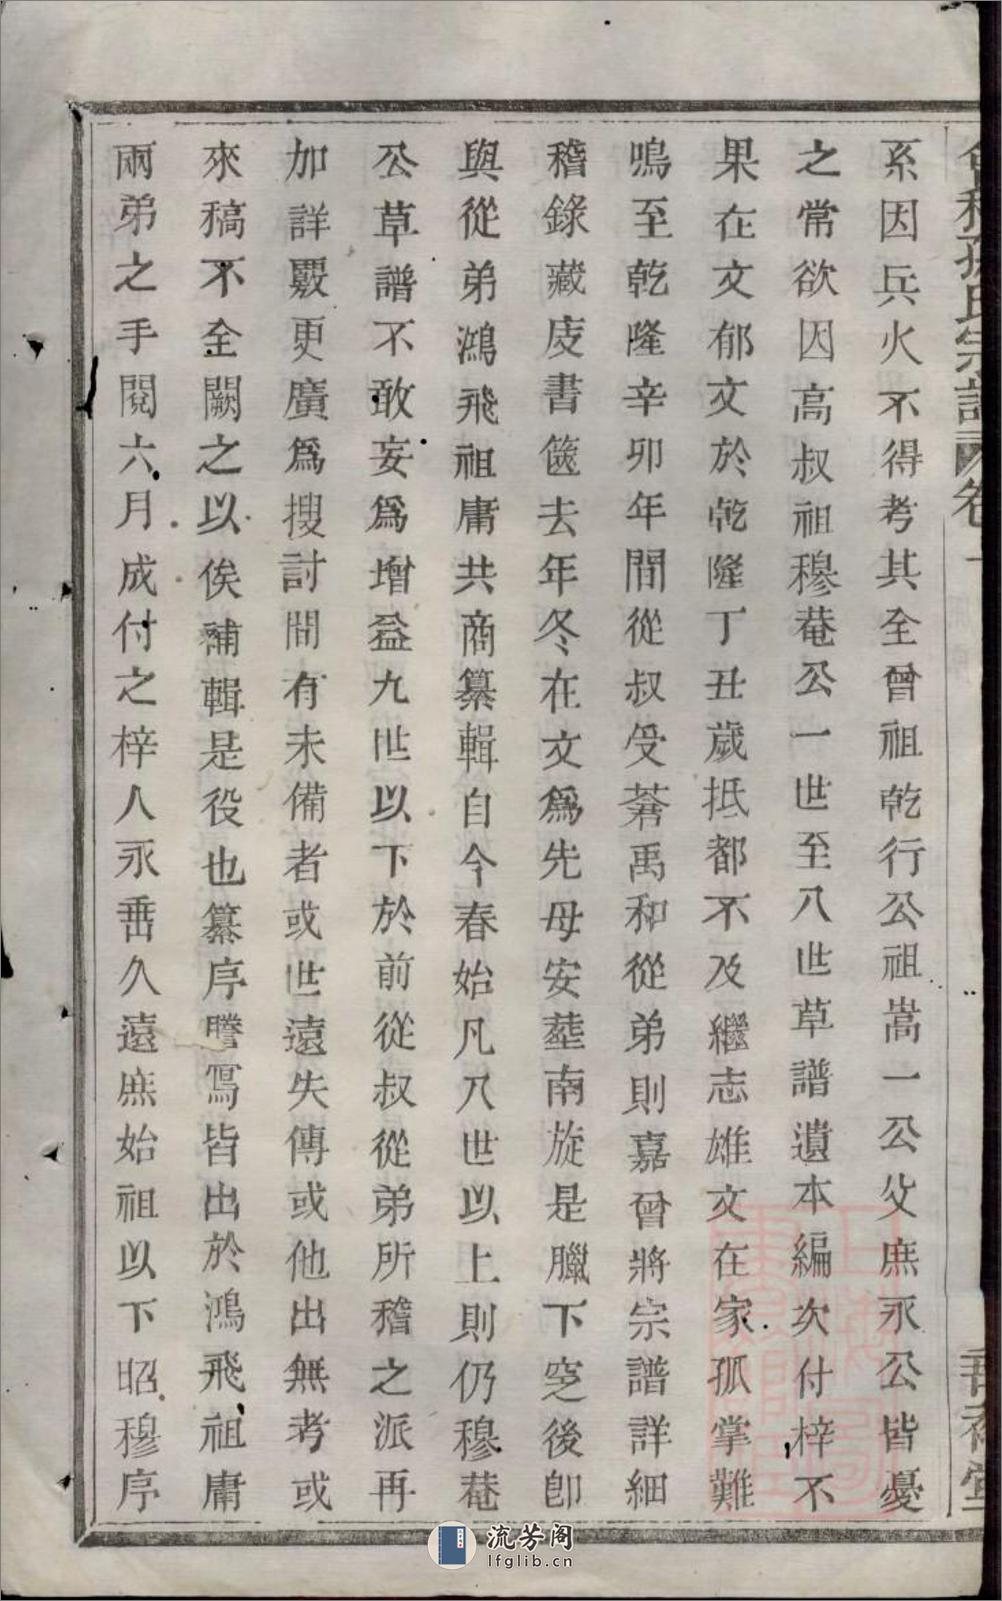 會稽孫氏宗譜 卷一 垂裕堂
系因兵火不得考其全曾祖乾行公祖嵩一公父庶永公皆憂
之常欲因高叔祖穆菴公一世至八世草譜遺本編次付梓不
果在文郁文於乾隆丁丑歲抵都不及繼志雄文在家孤掌難
鳴至乾隆辛卯年間從叔受蒼禹和從弟則嘉曾將宗譜詳細
稽錄藏庋書篋去年冬在文為先母安塟南旋是臘下窆後卽
與從弟鴻飛祖庸共商纂輯自今春始凡八世以上則仍穆菴
公草譜不敢妄為增益九世以下於前從叔從弟所稽之派再
加詳覈更廣為搜討間有未備者或世遠失傳或他出無考或
來稿不全闕之以俟補輯是役也纂序謄寫皆出於鴻飛祖庸
兩弟之手閱六月成付之梓人永垂久遠庶始祖以下昭穆序
流芳阁
lfglib.cn